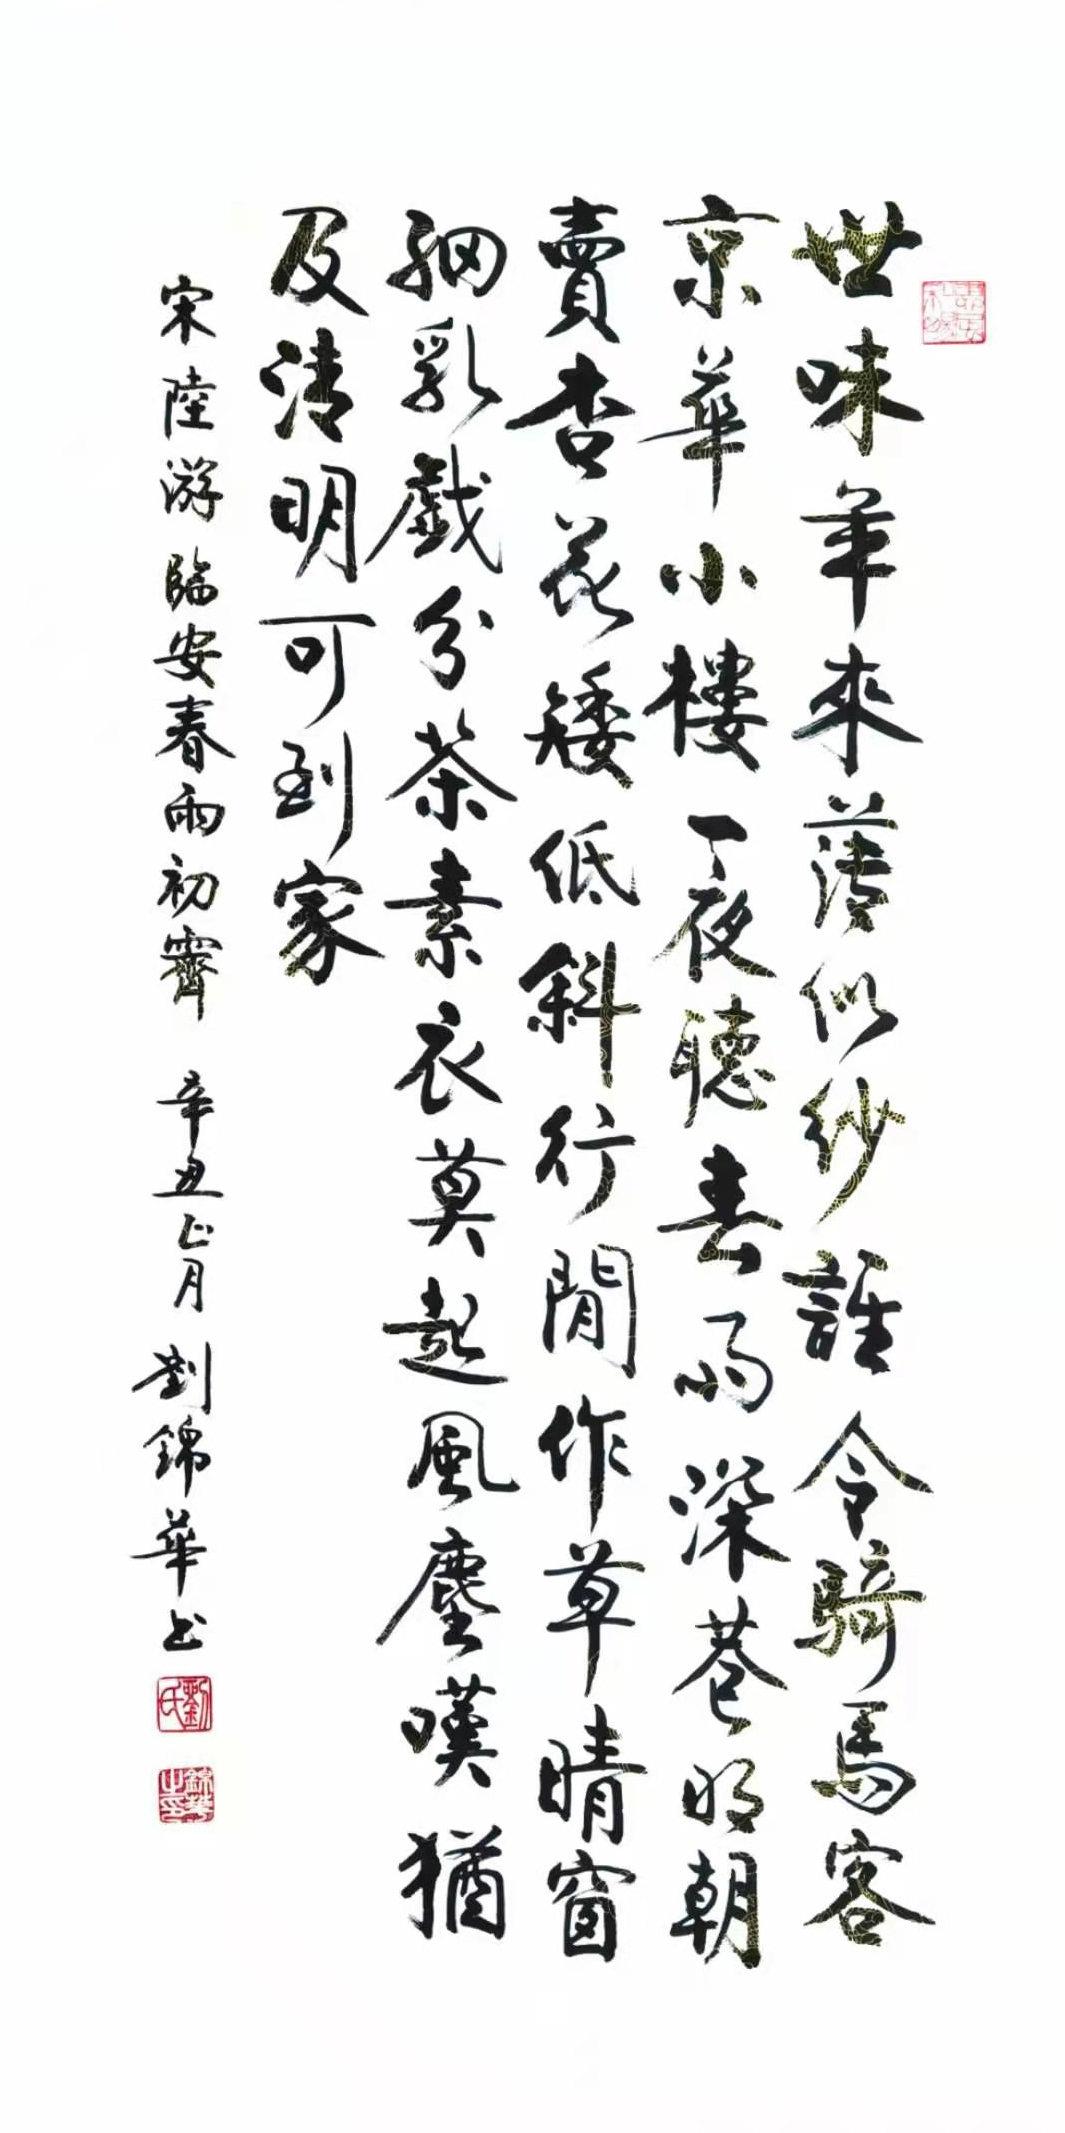 世味年來薄似紗誰令騎馬客
京華小樓一夜聽春雨深巷明朝
賣杏花矮低斜行閒作草晴窗
細乳戲分茶素衣莫起風塵嘆猶
及清明可到家
宋陸游臨安春雨初霽 辛丑正月 劉錦華书
劉氏